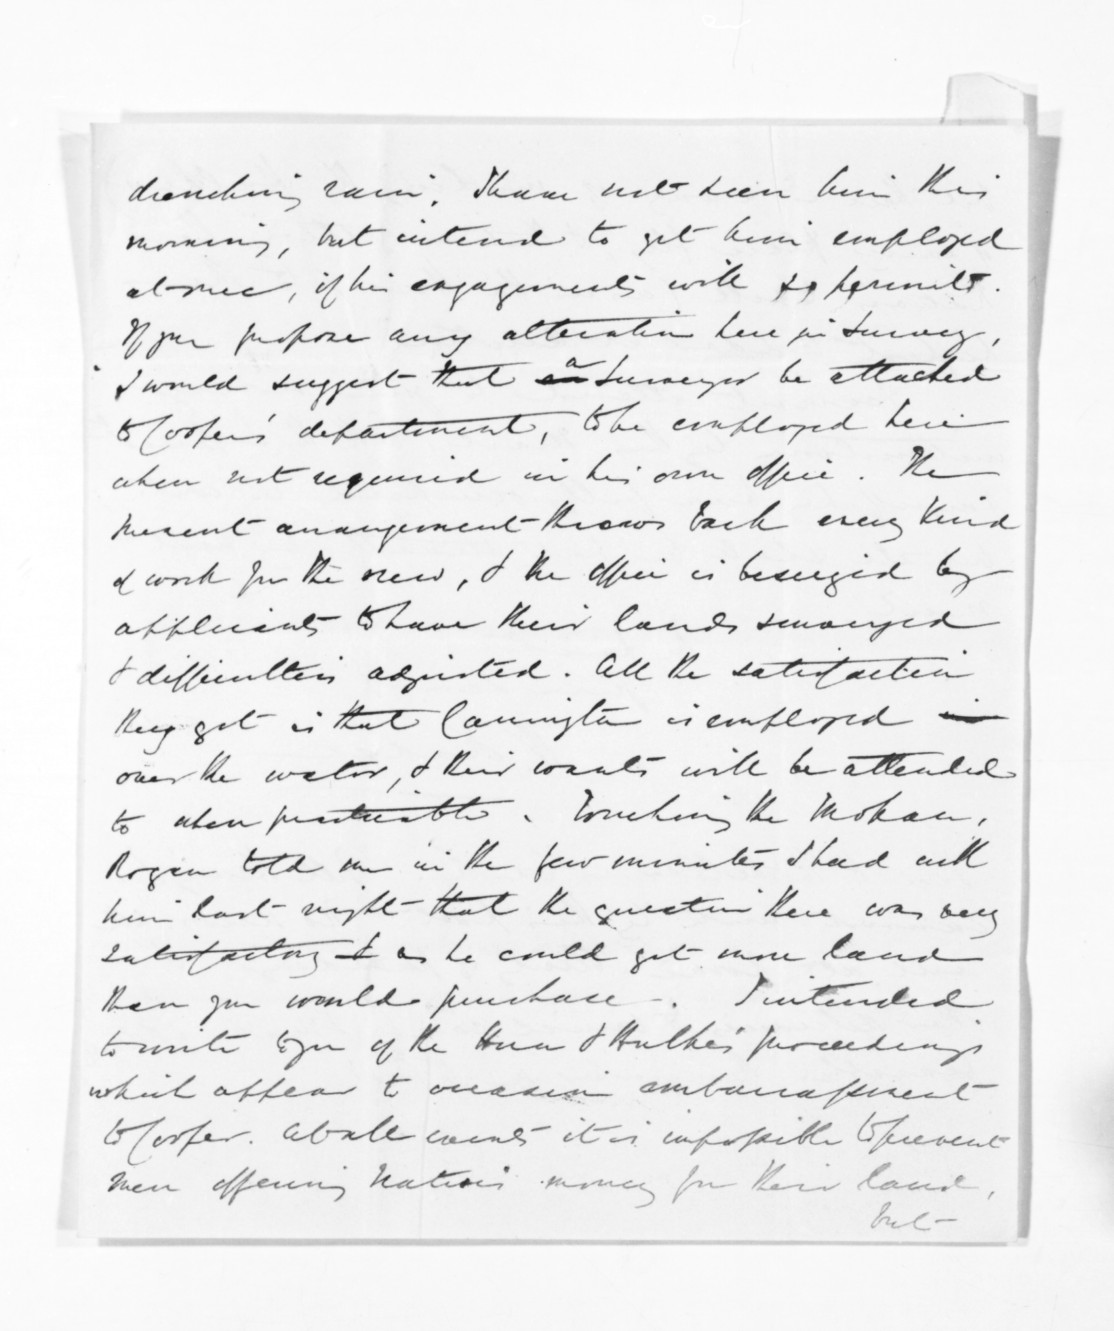 drenching rain. I have not seen him this
morning, but intend to get him employed
at once, if his engagements will so permit.
If you propose any alteration here in Survey,
I would suggest that a Surveyor be attached
to Cooper's department, to be employed here
when not required in his own office. The
present arrangement throws back every kind
of work for the new, & the office is beseiged by
applicants to have their lands surveyed
& difficulties adjusted. All the satisfaction
they get is that Carrington is employed in
over the water, & their wants will be attended
to when practicable. Touching the Mokau,
Rogan told me in the few minutes I had with
him last night that the question there was very
satisfactory & as he could get more land
than you would purchase. I intended
to write to you of the Hua & Hulke's proceedings
which appear to occasion embarrassment
to Cooper. At all events it is impossible to prevent
men offering Natives money for their land,
but